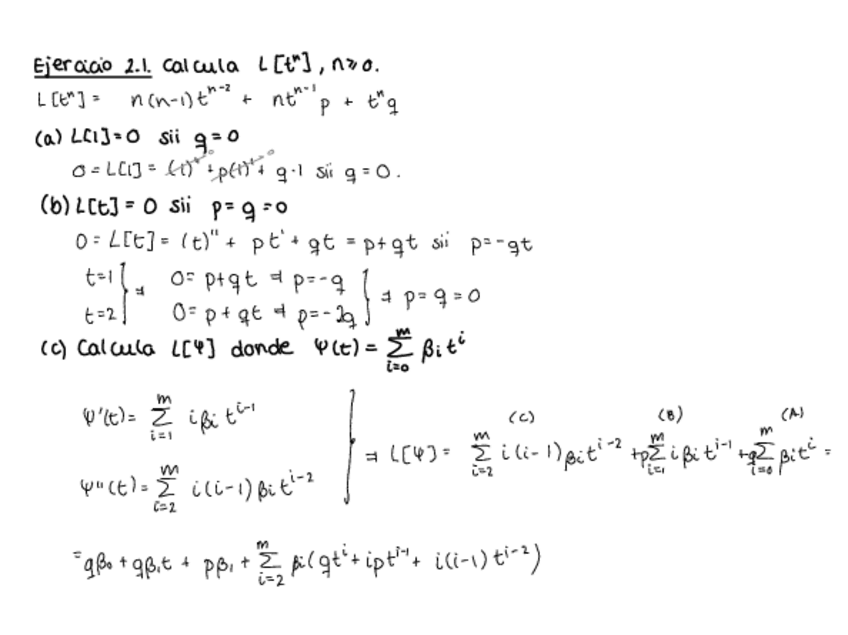 Ejercicio 2.1. Calcula L[tⁿ], n≥0.
L[tⁿ] = n(n-1)tⁿ⁻² + ntⁿ⁻¹p + tⁿq
(a) L[1]=0 sii q=0
0 = L[1] = (1)'' + p(1)' + q·1 sii q=0.
(b) L[t] = 0 sii p=q=0
0 = L[t] = (t)'' + pt' + qt = p+qt sii p=-qt
t=1 ⇒ 0=p+qt ⇒ p=-q
t=2 ⇒ 0=p+qt ⇒ p=-2q ⇒ p=q=0
(c) Calcula L[Ψ] donde Ψ(t) = ∑_{i=0}^{m} βᵢtⁱ
(C) (B) (A)
Ψ'(t) = ∑_{i=1}^{m} iβᵢtⁱ⁻¹
⇒ L[Ψ] = ∑_{i=2}^{m} i(i-1)βᵢtⁱ⁻² + p∑_{i=1}^{m} iβᵢtⁱ⁻¹ + q∑_{i=0}^{m} βᵢtⁱ =
Ψ''(t) = ∑_{i=2}^{m} i(i-1)βᵢtⁱ⁻²
= qβ₀ + qβ₁t + pβ₁ + ∑_{i=2}^{m} βᵢ(qtⁱ + iptⁱ⁻¹ + i(i-1)tⁱ⁻²)